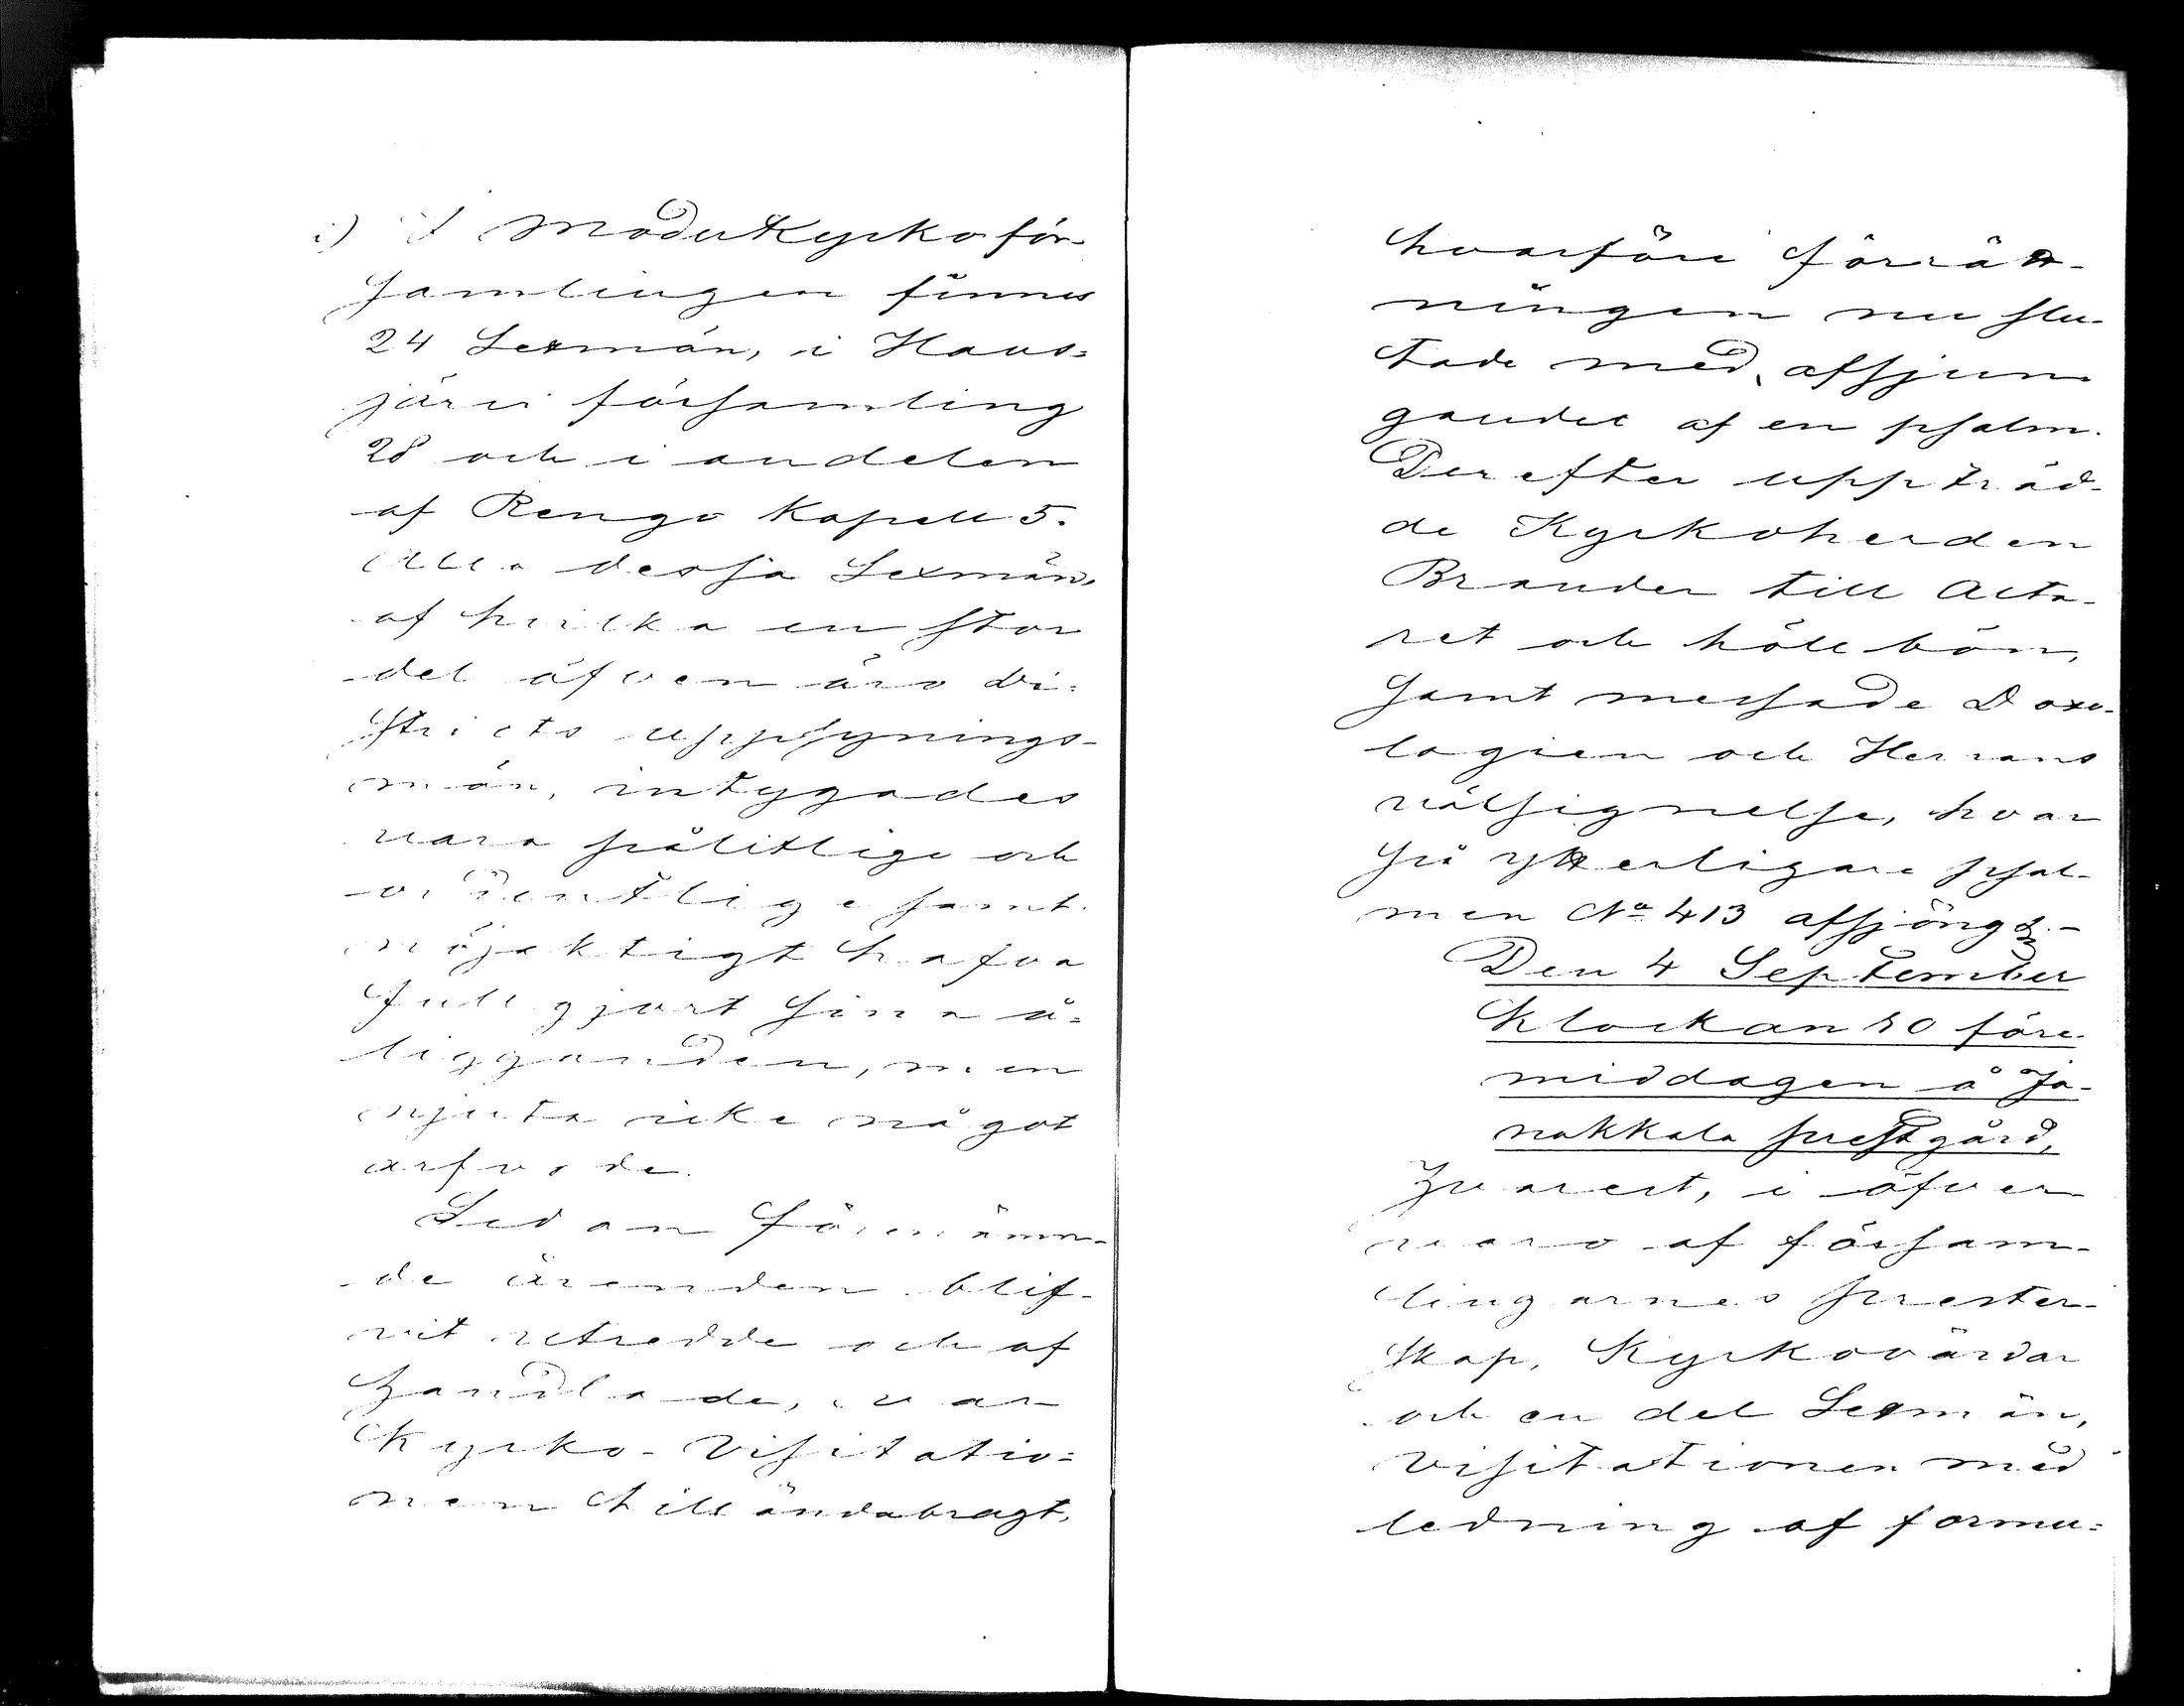 i) I Moderkyrkoför-
samlingen finnes
24 Sexmän, i Haus=
järvi församling
28 och i andelen
af Rengo Kapell 5.
Alla dessa Sexmän,
af hvilka en stor
del äfven äro Di=
stricts uppsynings-
män, intygades
vara pålitlige och
ordentlige samt
nöjaktigt hafva
fullgjort sina å=
ligganden, men
njuta icke något
arfvode.
Sedan förenämn-
de ärenden blif-
vit utredde och af
handlade, var
Kyrko-Visitatio=
nen till ändabragt,
hvarföre förrätt-
ningen nu slu-
tade med afsjun-
gandet af en psalm.
Derefter uppträd-
de Kyrkoherden
Brander till Alta-
ret och höll bön,
samt messade Doxo-
logien och Herrans
välsignelse, hvar
på ytterligare psal-
men No 413 afsjöngs.-
Den 4 September
Klockan 10 före-
middagen å Ja-
nakkala prestgård,
hvarest, i öfver
varo af försam-
lingarnes prester-
skap, Kyrkovärdar
och en del Sexmän,
Visitationen med
ledning af formu=